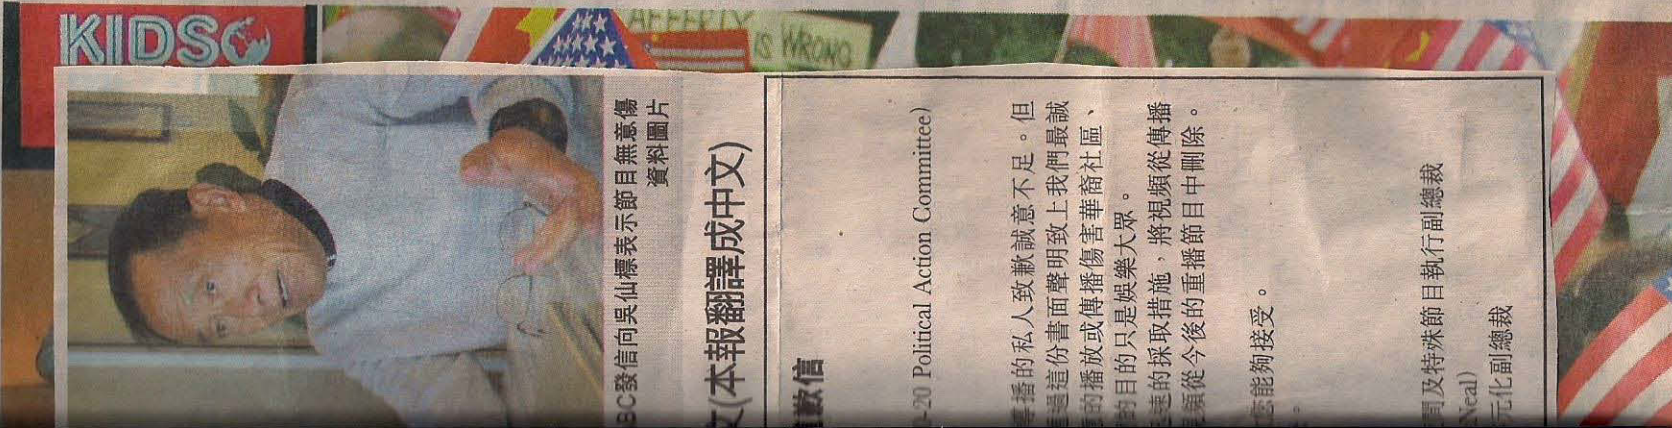 KIDS
AFFERTY
IS WRONG
BC發信向吳仙標表示節目無意傷
資料圖片
文(本報翻譯成中文)
歉信
-20 Political Action Committee)
播的私人致歉誠意不足。但
過這份書面聲明致上我們最誠
的播放或傳播傷害華裔社區、
的目的只是娛樂大眾。
速的採取措施，將視頻從傳播
視頻從今後的重播節目中刪除。
您能夠接受。
。
聞及特殊節目執行副總裁
Neal)
元化副總裁